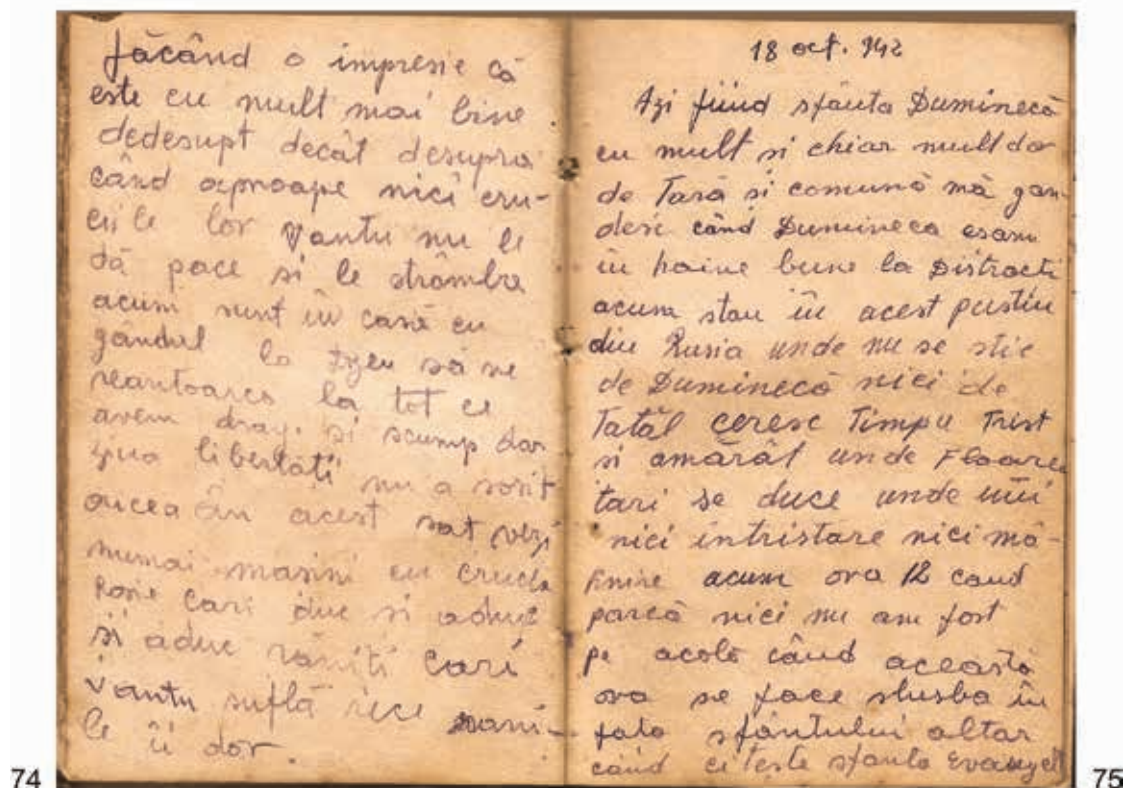 făcând o impresie că
este cu mult mai bine
dedesupt decât desupra
când aproape nici cru-
cile lor vantu nu le
dă pace si le strâmba
acum sunt în casă cu
gândul la Dzeu să ne
reantoarca la tot ce
avem drag. si scump dar
ziua libertăti nu a sosit
aicea ân acest sat vezi
numai masini cu crucea
Rosie cari duc si aduc
si aduc răniti cari
vantu suflă rece rani-
le îi dor.
74
18 oct. 942
Azi fiind sfânta Duminecă
cu mult si chiar mult dor
de Tară si comună mă gan-
desc când Dumineca esam
în haine bune la Distracti
acum stau în acest pustiu
din Rusia unde nu se stie
de Duminecă nici de
Tatăl ceresc Timpu Trist
si amărât unde Floarea
tari se duce unde
nici intristare nici mâ-
hnire acum ora 12 cand
parcă nici nu am fost
pe acolo când această
ora se face slusba în
fata sfântului altar
când citeste sfanta Evangel
75